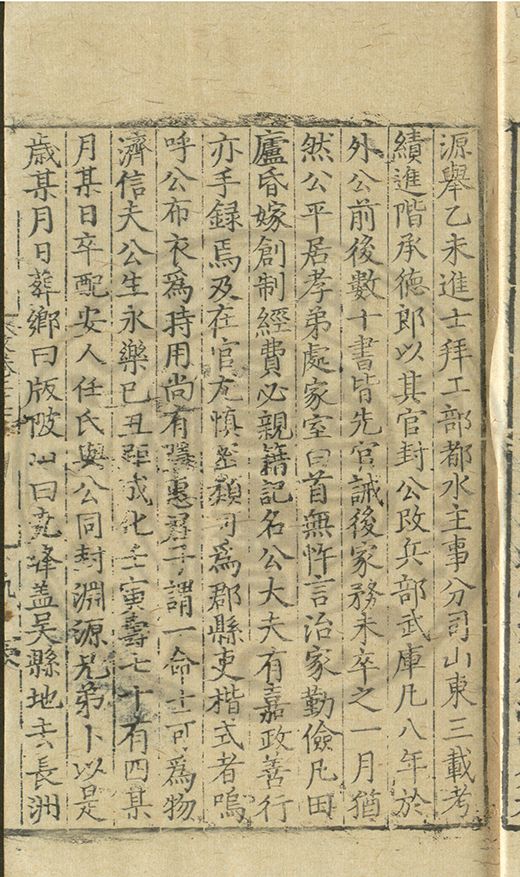 源舉乙未進士拜工部都水主事分司山東三載考
績進階承德郎以其官封公改兵部武庫凡八年於
外公前後數十書皆先官誡後家務未卒之一月猶
然公平居孝弟處家室白首無忤言治家勤儉凡田
廬昏嫁創制經費必親籍記名公大夫有嘉政善行
亦手録焉及在官尤慎密類可爲郡縣吏楷式者嗚
呼公布衣爲時用尚有惠君子謂一命士可爲物
濟信夫公生永樂己丑距成化壬寅壽七十有四某
月某日卒配安人任氏與公同封淵源兄弟卜以是
歲某月日葬鄉曰版陂山曰堯峰蓋吳縣地去長洲